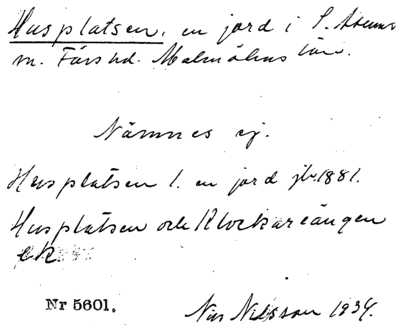 Husplatsen, en jord i S. Åsums
m. Färs hd. Malmöhus län.
Nämnes ej.
Husplatsen 1. en jord jb. 1881.
Husplatsen och Klockareängen
ek.
Nr 5601. Nils Nilsson 1934.